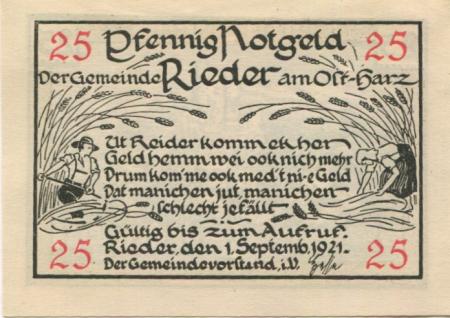 25 Pfennig Notgeld 25
Der Gemeinde Rieder am Ost-Harz
Ut Reider komm ek her
Geld hemm wei ook nich mehr
Drum kom'me ook med't ni-e Geld
Dat manichen jut, manichen
schlecht jefällt
Gültig bis zum Aufruf.
Rieder, den 1. Septemb. 1921.
25 Der Gemeindevorstand, i.V. 25